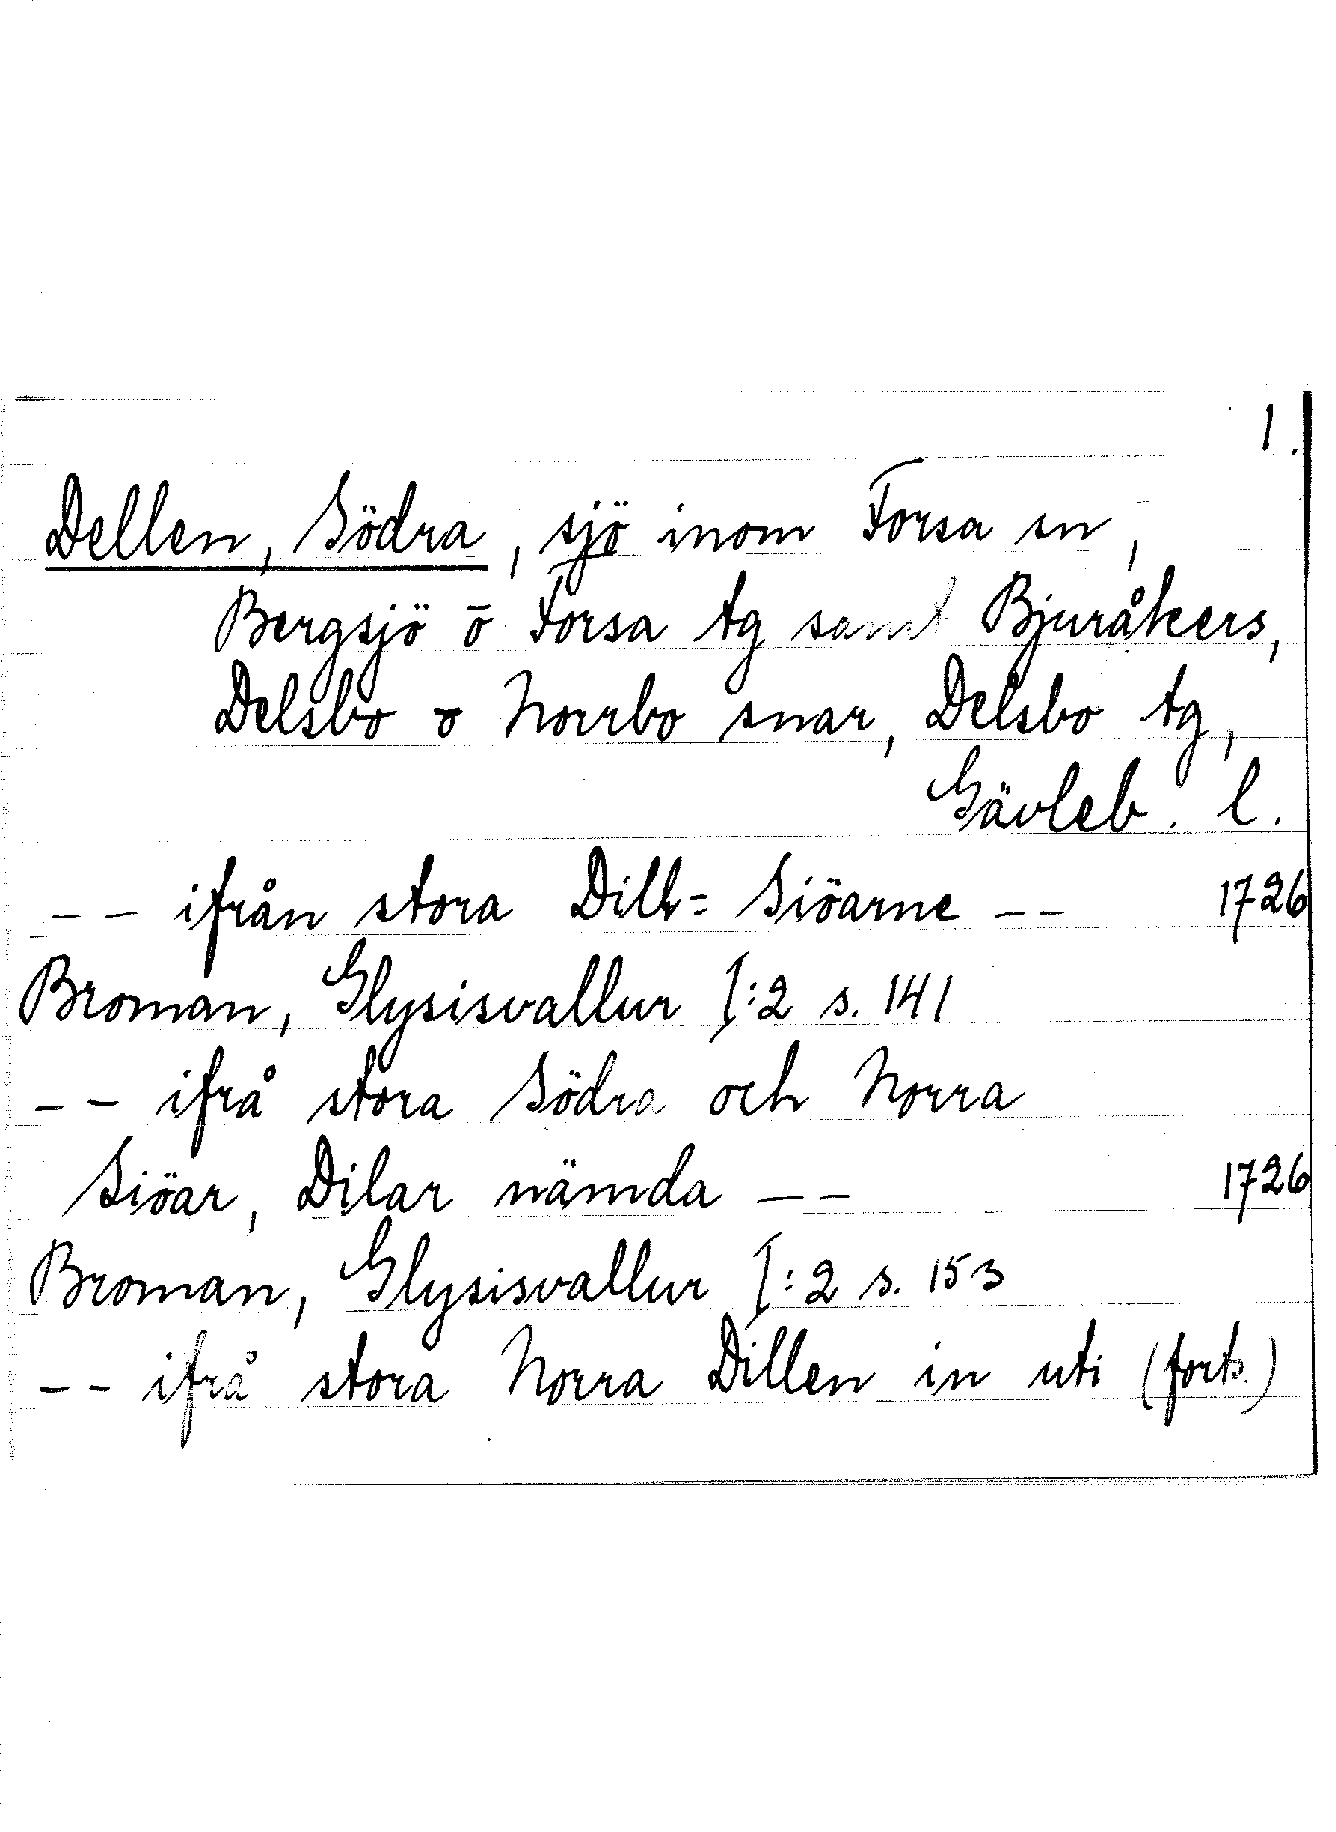 1.
Dellen, Södra, sjö inom Forsa sn,
Bergsjö o Forsa tg samt Bjuråkers,
Delsbo o Norrbo snar, Delsbo tg,
Gävleb. l.
-- ifrån stora Dill= Siöarne -- 1726
Broman, Glysisvallur I:2 s. 141
-- ifrå stora Södra och Norra
Siöar, Dilar nämda -- 1726
Broman, Glysisvallur I:2 s. 153
-- ifrå stora Norra Dillen in uti (forts.)